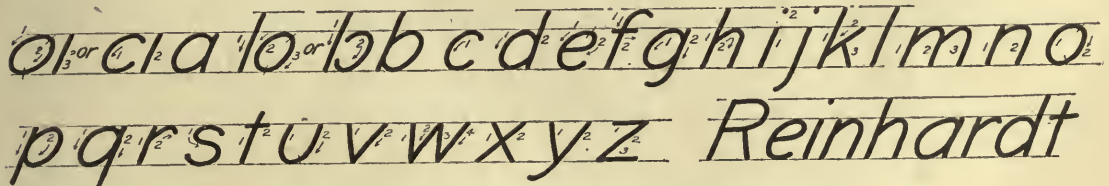 ol or cl a lo or lɔ b c d e f g h i j k l m n o
p q r s t u v w x y z Reinhardt